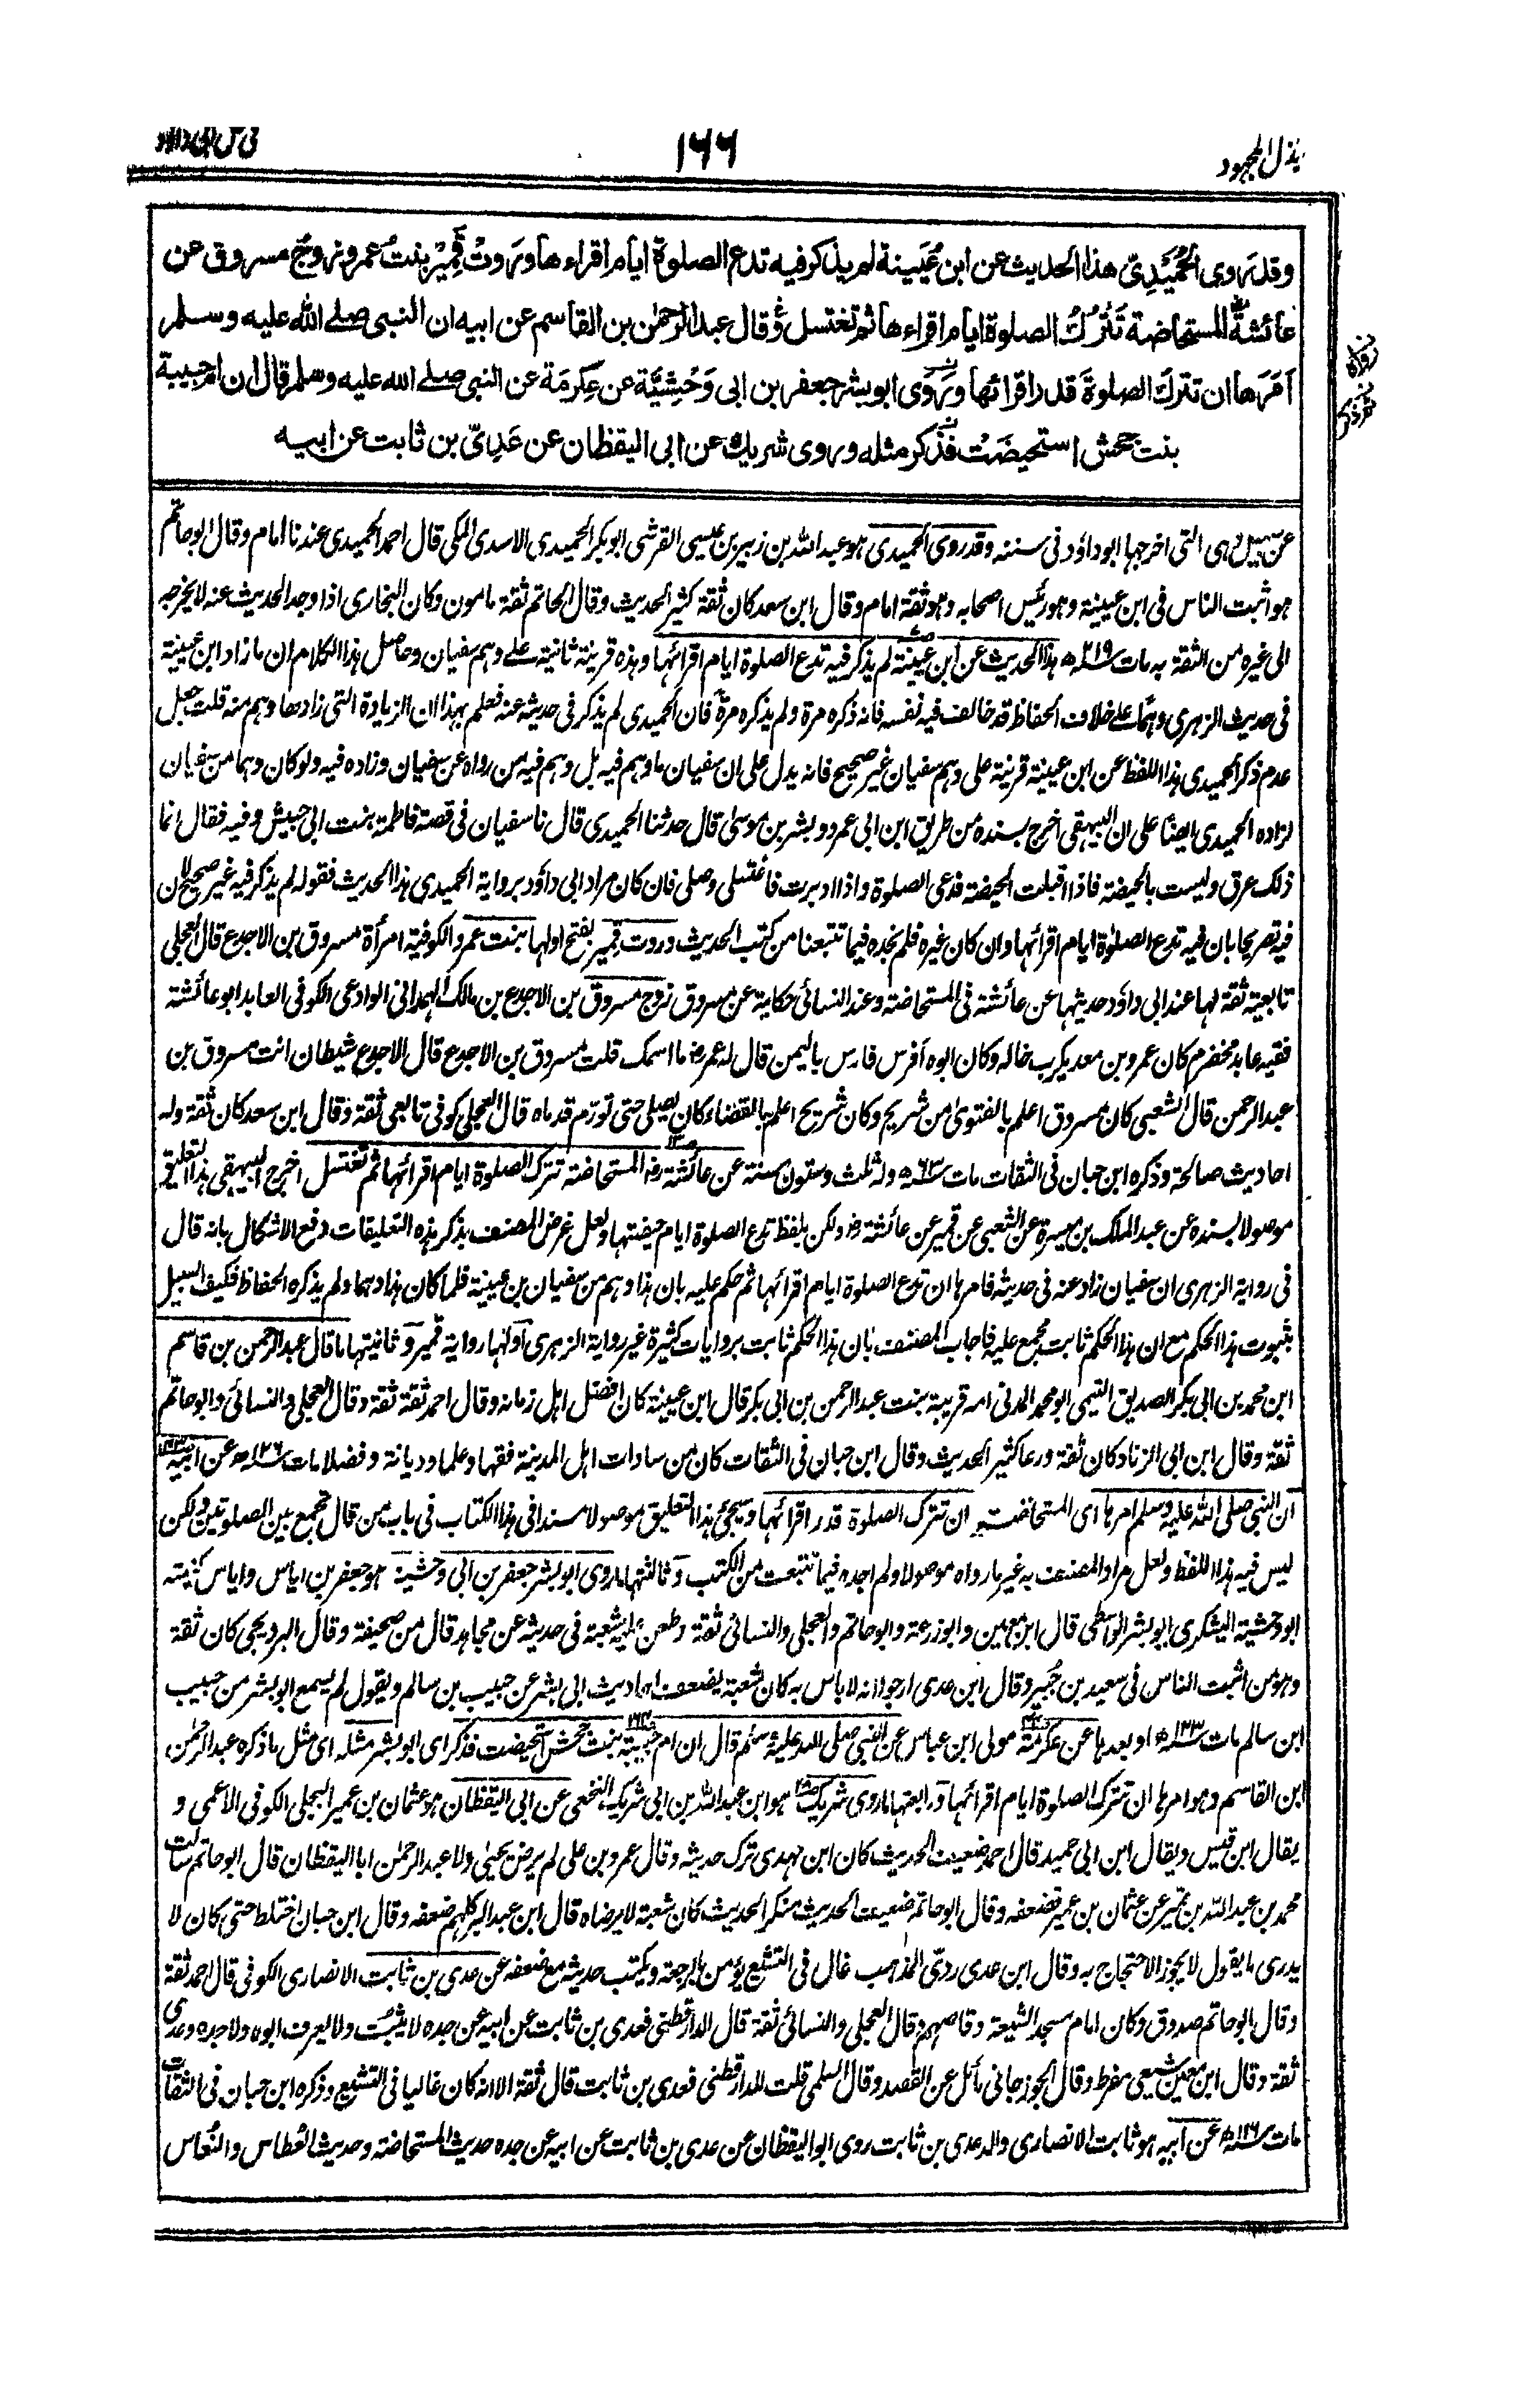 بذل المجهود
١٦٦
فى حل ابى داؤد
وقد روى الحُمَيْدِىّ هذا الحديث عن ابن عُيَيْنة لم يذكر فيه تدع الصلوة ايام اقراءها وروت قَمِيْرُ بنتُ عمرو زوجُ مسروق عن
عائشةَ المستحاضة تَتْرُكُ الصلوة ايام اقراءها ثم تغتسل وقال عبد الرحمٰن بن القاسم عن ابيه ان النبى صلے الله عليه وسلم
اَمَرَها ان تترك الصلوةَ قدر اقرائها وَرَوى ابو بشر جعفر بن ابى وَحْشِيَّة عن عِكرمَة عن النبى صلے الله عليه وسلم قال ان ام حبيبة
بنت جحش استحيضَتْ فذكر مثله وروى شريك عن ابى اليقظان عن عَدِىّ بن ثابت عن ابيه
عن سهيل وهى التى اخرجها ابوداؤد فى سننه وقد روى الحميدى هو عبد الله بن زبير بن عيسى القرشى ابوبكر الحميدى الاسدى المكى قال احمد الحميدى عندنا امام وقال ابوحاتم
هو اثبت الناس فى ابن عيينة وهو رئيس اصحابه وهو ثقة امام وقال ابن سعد كان ثقة كثير الحديث وقال الحاكم ثقة مامون وكان البخارى اذا وجد الحديث عنه لا يخرجه
الى غيره من الثقة به مات سنه ٢١٩ھ هذا الحديث عن ابن عيينة لم يذكر فيه تدع الصلوة ايام اقرائها وهذه قرينة ثانية على وهم سفيان وحاصل هذا الكلام ان ما زاد ابن عيينة
فى حديث الزهرى وهمًا على خلاف الحفاظ قد خالف فيه نفسه فانه ذكره مرة ولم يذكره مرة فان الحميدى لم يذكر فى حديثه عنه فعلم بهذا ان الزيادة التى زادها وهم منه قلت جعل
عدم ذكر الحميدى هذا اللفظ عن ابن عيينة قرينة على وهم سفيان غير صحيح فانه يدل على ان سفيان ما وهم فيه بل وهم فيه من رواه عن سفيان وزاده فيه ولو كان وهما من سفيان
لزاده الحميدى ايضًا على ان البيهقى اخرج بسنده من طريق ابن ابى عمرو وبشر بن موسىٰ قال حدثنا الحميدى قال نا سفيان فى قصة فاطمة بنت ابى حبيش وفيه فقال انما
ذلك عرق وليست بالحيضة فاذا اقبلت الحيضة فدعى الصلوة واذا ادبرت فاغتسلى وصلى فان كان مراد ابى داؤد برواية الحميدى هذا الحديث فقوله لم يذكر فيه غير صحيح لان
فيه تصريحا بان فيه تدع الصلوٰة ايام اقرائها وان كان غيره فلم نجده فيما تتبعنا من كتب الحديث وروت قمير بفتح اولها بنت عمرو الكوفية امرأة مسروق بن الاجدع قال العجلى
تابعية ثقة لها عند ابى داؤد حديثها عن عائشة فى المستحاضة وعند النسائى حكاية عن مسروق زوج مسروق بن الاجدع بن مالك الهمدانى الوادعى الكوفى العابد ابو عائشة
فقيه عابد مخضرم كان عمرو بن معديكرب خاله وكان ابوه افرس فارس باليمن قال له عمر رض ما اسمك قلت مسروق بن الاجدع قال الاجدع شيطان انت مسروق بن
عبد الرحمن قال الشعبى كان مسروق اعلم بالفتوىٰ من شريح وكان شريح اعلم بالقضاء كان يصلى حتى تورم قدماه قال العجلى كوفى تابعى ثقة وقال ابن سعد كان ثقة وله
احاديث صالحة وذكره ابن حبان فى الثقات مات سنه ٦٣ھ وله ثلث وستون سنة عن عائشة رض المستحاضة تترك الصلوة ايام اقرائها ثم تغتسل اخرج البيهقى هذا التعليق
موصولا بسنده عن عبد الملك بن ميسرة عن الشعبى عن قمير عن عائشة رض ولكن بلفظ تدع الصلوة ايام حيضتها ولعل غرض المصنف بذكر هذه التعليقات دفع الاشكال بانه قال
فى رواية الزهرى ان سفيان زاد عنه فى حديثه فامرها ان تدع الصلوة ايام اقرائها ثم حكم عليه بان هذا وهم من سفيان بن عيينة فلما كان هذا وهما ولم يذكره الحفاظ فكيف السبيل
بثبوت هذا الحكم مع ان هذا الحكم ثابت مجمع عليه فاجاب المصنف بان هذا الحكم ثابت بروايات كثيرة غير رواية الزهرى اولها رواية قمير وثانيتها ما قال عبد الرحمن بن قاسم
ابن محمد بن ابى بكر الصديق التيمى ابو محمد المدنى امه قريبة بنت عبد الرحمن بن ابى بكر قال ابن عيينة كان افضل اهل زمانه وقال احمد ثقة ثقة وقال العجلى والنسائى وابو حاتم
ثقة وقال ابن ابى الزناد كان ثقة ورعا كثير الحديث وقال ابن حبان فى الثقات كان من سادات اهل المدينة فقها وعلما وديانة وفضلا مات سنه ١٢٦ھ عن ابيه
ان النبى صلى الله عليه وسلم امرها اى المستحاضة ان تترك الصلوة قدر اقرائها وسيجئ هذا التعليق موصولا مسندا فى هذا الكتاب فى باب من قال تجمع بين الصلوتين لكن
ليس فيه هذا اللفظ ولعل مراد المصنف به غير ما رواه موصولا ولم اجده فيما تتبعت من الكتب وثالثتها ما روى ابو بشر جعفر بن ابى وحشية هو جعفر بن اياس واياس كنيته
ابو وحشية اليشكرى ابو بشر الواسطى قال ابن معين وابو زرعة وابو حاتم والعجلى والنسائى ثقة وطعن عليه شعبة فى حديثه عن مجاهد قال من صحيفة وقال البرديجى كان ثقة
وهو من اثبت الناس فى سعيد بن جُبير وقال ابن عدى ارجو انه لا باس به كان شعبة يضعف احاديث ابى بشر عن حبيب بن سالم ويقول لم يسمع ابو بشر من حبيب
ابن سالم مات سنه ١٢٣ھ او بعدها عن عكرمة مولى ابن عباس عن النبى صلى الله عليه وسلم قال ان ام حبيبة بنت جحش استحيضت فذكر اى ابو بشر مثله اى مثل ما ذكره عبد الرحمٰن
ابن القاسم وهو امرها ان تترك الصلوة ايام اقرائها ورابعتها ما روى شريك هو ابن عبد الله بن ابى شريك النخعى عن ابى اليقظان هو عثمان بن عمير البجلى الكوفى الاعمى و
يقال ابن قيس ويقال ابن ابى حميد قال احمد ضعيف الحديث كان ابن مهدى ترك حديثه وقال عمرو بن على لم يرض يحيىٰ ولا عبد الرحمٰن ابا اليقظان قال ابو حاتم سألت
محمد بن عبد الله بن نمير عن عثمان بن عمير فضعفه وقال ابو حاتم ضعيف الحديث منكر الحديث كان شعبة لا يرضاه قال ابن عبد البر كلهم ضعفه وقال ابن حبان اختلط حتى كان لا
يدرى ما يقول لا يجوز الاحتجاج به وقال ابن عدى ردئ المذهب غال فى التشيع يؤمن بالرجعة ويكتب حديثه مع ضعفه عن عدى بن ثابت الانصارى الكوفى قال احمد ثقة
وقال ابو حاتم صدوق وكان امام مسجد الشيعة وقاصهم وقال العجلى والنسائى ثقة قال الدارقطنى فعدى بن ثابت عن ابيه عن جده لا يثبت ولا يعرف ابوه ولا جده وعدى
ثقة وقال ابن معين شيعى مفرط وقال الجوزجانى مائل عن القصد وقال السلمى قلت للدارقطنى فعدى بن ثابت قال ثقة الا انه كان غاليا فى التشيع وذكره ابن حبان فى الثقات
مات سنه ١١٦ھ عن ابيه هو ثابت الانصارى والد عدى بن ثابت روى ابو اليقظان عن عدى بن ثابت عن ابيه عن جده حديث المستحاضة وحديث العُطاس والنُعاس